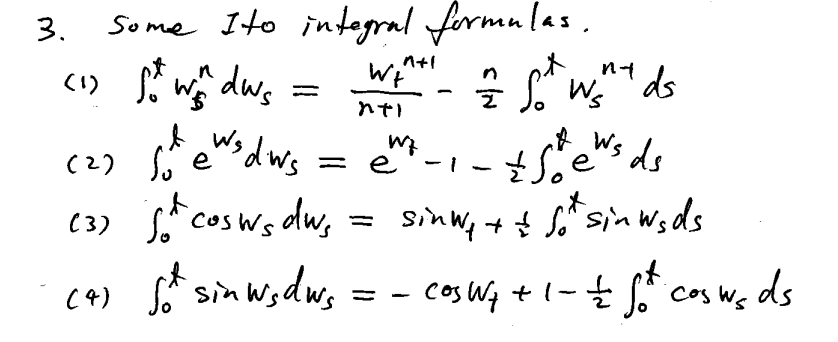 3. Some Ito integral formulas.
(1) ∫₀ᵗ Wₛⁿ dWₛ = Wₜⁿ⁺¹/(n+1) - n/2 ∫₀ᵗ Wₛⁿ⁻¹ ds
(2) ∫₀ᵗ e^{Wₛ} dWₛ = e^{Wₜ} - 1 - 1/2 ∫₀ᵗ e^{Wₛ} ds
(3) ∫₀ᵗ cos Wₛ dWₛ = sin Wₜ + 1/2 ∫₀ᵗ sin Wₛ ds
(4) ∫₀ᵗ sin Wₛ dWₛ = - cos Wₜ + 1 - 1/2 ∫₀ᵗ cos Wₛ ds